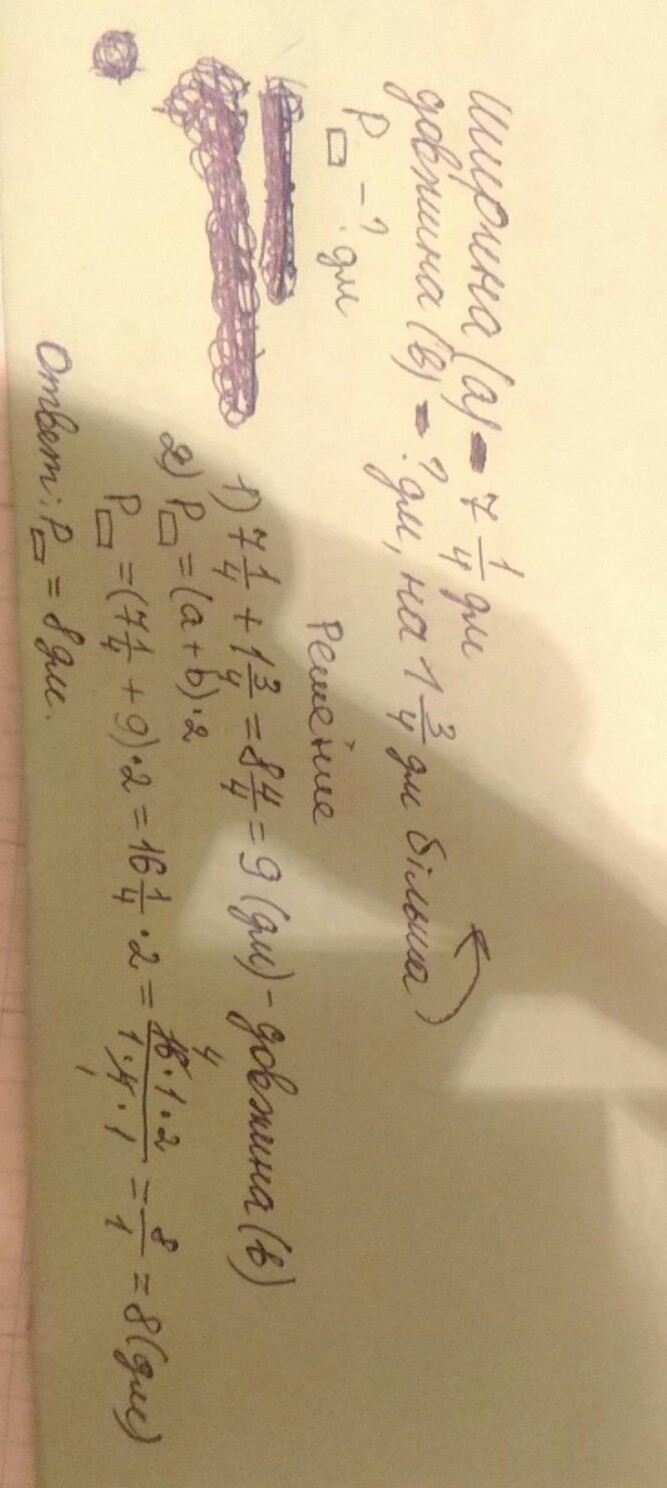 Ширина (a) - 7 1/4 дм
довжина (в) - ? дм, на 1 3/4 дм більша)
P▭ - ? дм
Решение
1) 7 1/4 + 1 3/4 = 8 4/4 = 9 (дм) - довжина (в)
2) P▭ = (a + b) · 2
P▭ = (7 1/4 + 9) · 2 = 16 1/4 · 2 = 16 · 1 · 2 / 1 · 4 · 1 = 8/1 = 8 (дм)
Ответ: P▭ = 8 дм.